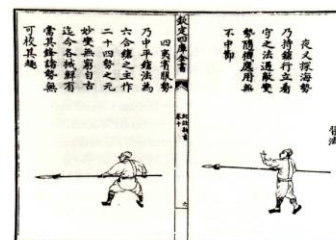 夜叉探海勢
乃持鎗行立看
守之法遇敵變
勢隨機應用無
不中節
欽定四庫全書
紀效新書
卷十
六
四夷賓服勢
乃中平鎗法為
六合鎗之主作
二十四勢之元
妙變無窮自古
迄今各械鮮有
當其鋒諸勢無
可校其趣